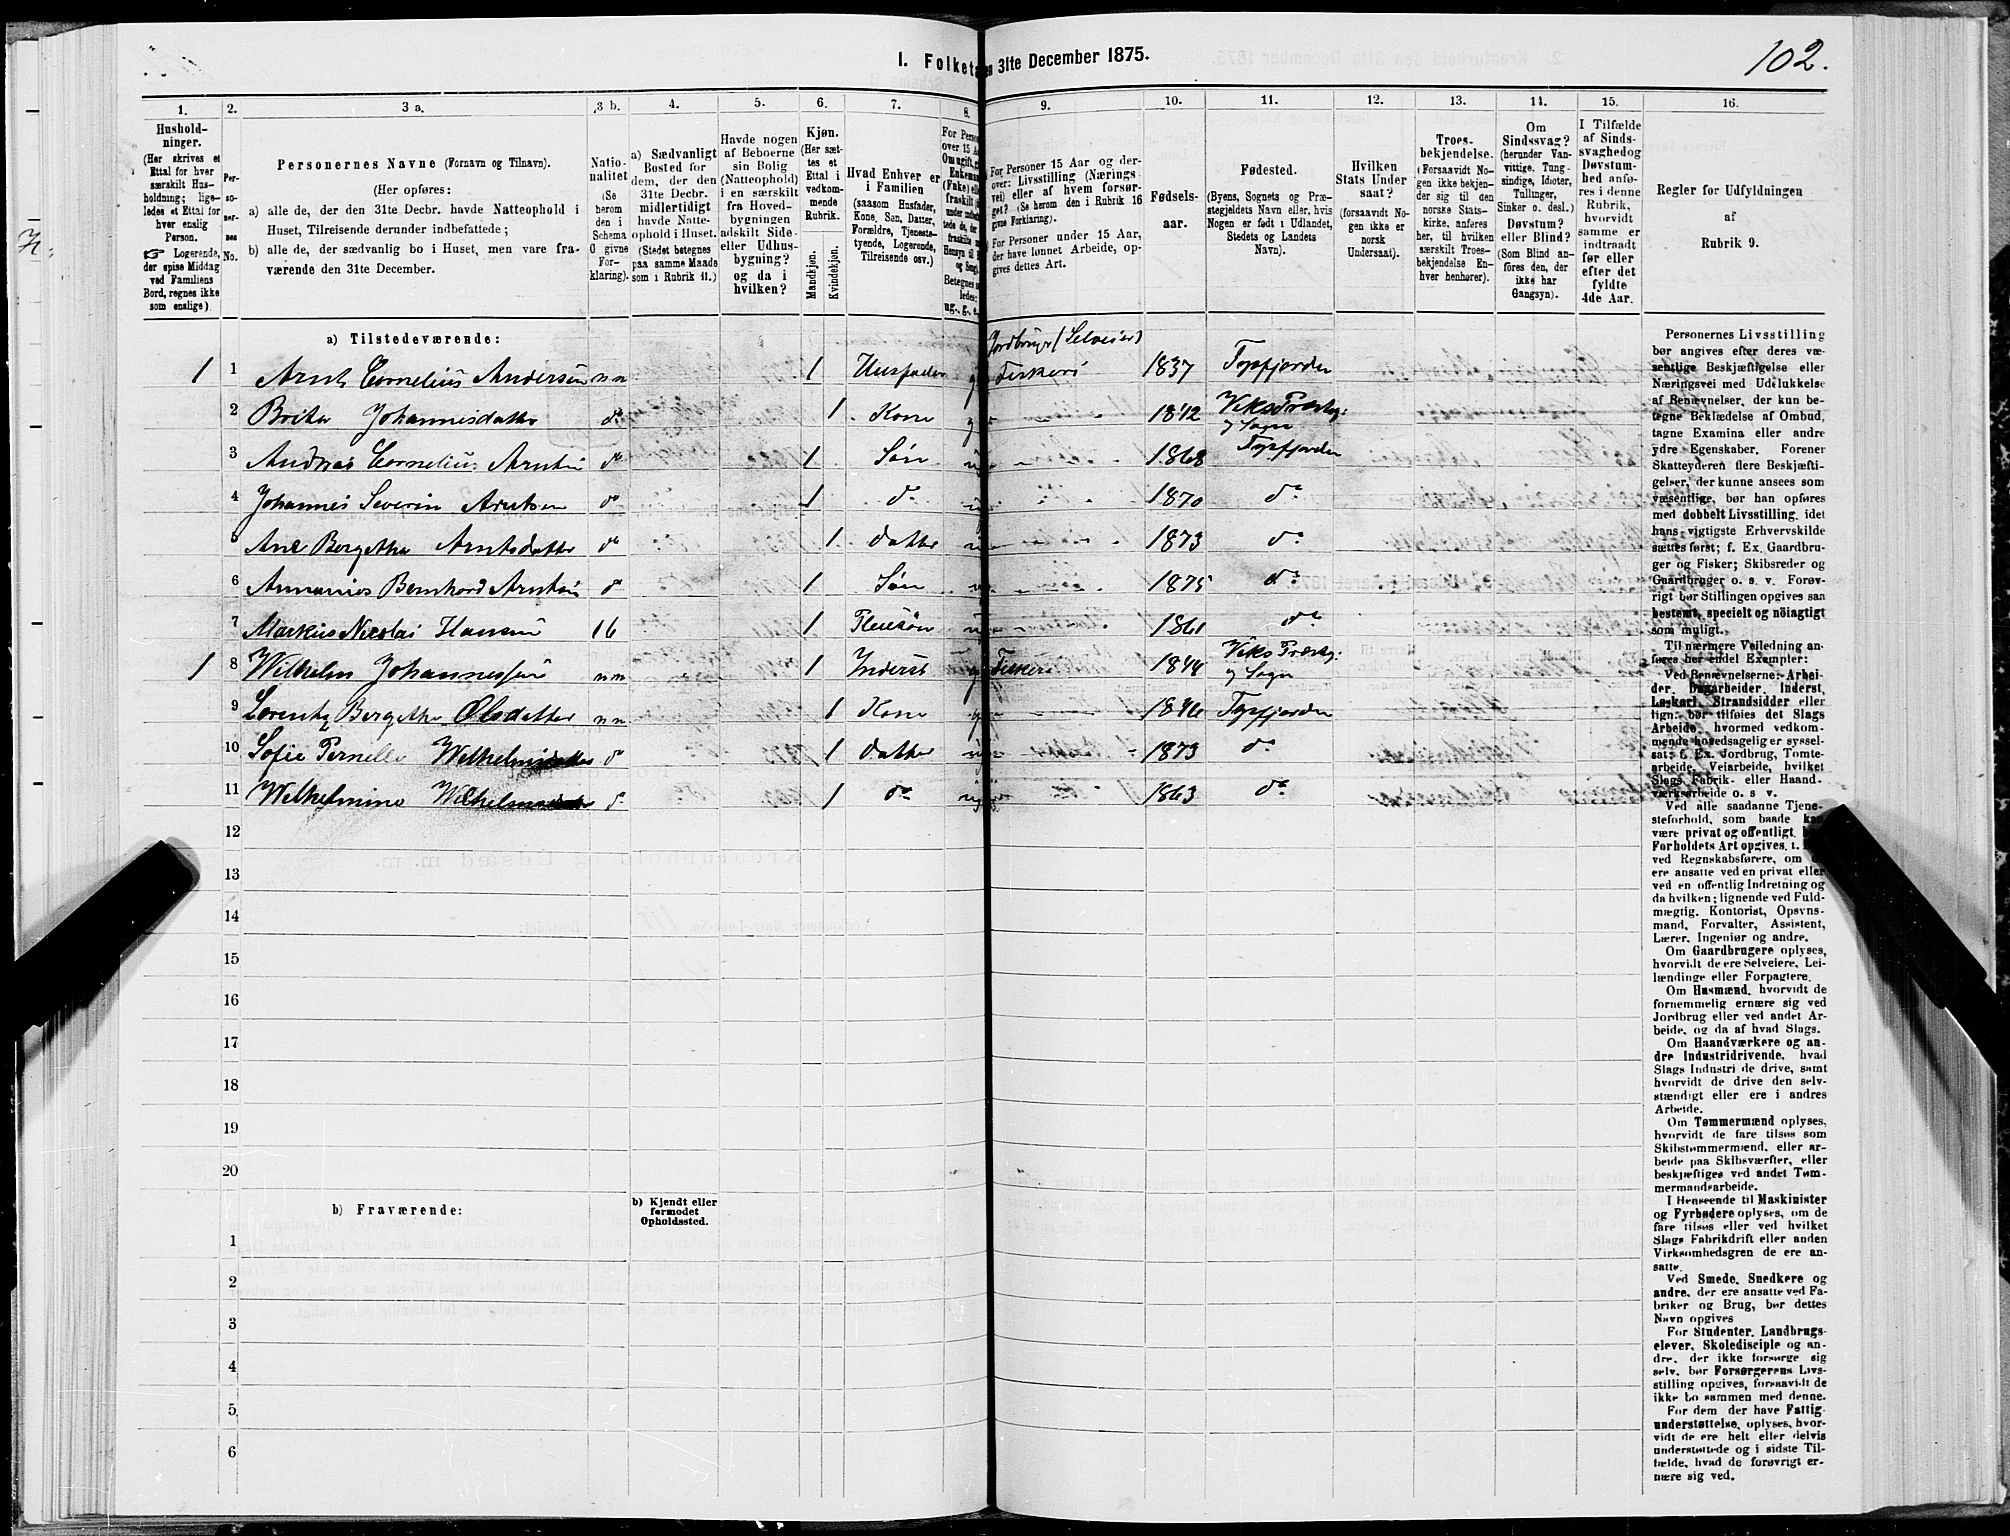 102.
1. Folketæ
en 31te December 1875.
1.
2.
3 a.
3 b.
4.
5.
6.
7.
8.
9.
10.
11.
12.
13.
14.
15.
16.
Hushold-
ninger.
(Her skrives et
Ettal for hver
særskilt Hus-
holdning; lige-
ledes et Ettal for
hver enslig
Person.
☞ Logerende,
der spise Middag
ved Familiens
Bord, regnes ikke
som enslige).
Per-
so-
ner-
nes
No.
Personernes Navne (Fornavn og Tilnavn).
(Her opføres:
a) alle de, der den 31te Decbr. havde Natteophold i
Huset, Tilreisende derunder indbefattede;
b) alle de, der sædvanlig bo i Huset, men vare fra-
værende den 31te December.
Natio-
nalitet
(Se
herom
den i
Schema
O givne
For-
klaring).
a) Sædvanligt
Bosted for
dem, der den
31te Decbr.
midlertidigt
havde Natte-
ophold i Huset.
(Stedet betegnes
paa samme Maade
som i Rubrik 11.)
Havde nogen
af Beboerne
sin Bolig
(Natteophold)
i en særskilt
fra Hoved-
bygningen
adskilt Side-
eller Udhus-
bygning?
og da i
hvilken?
Kjøn.
(Her sæt-
tes et
Ettal i
vedkom-
mende
Rubrik.
Mandkjøn.
Kvindekjøn.
Hvad Enhver er
i Familien
(saasom Husfader,
Kone, Søn, Datter,
Forældre, Tjeneste-
tyende, Logerende,
Tilreisende osv.)
For Personer 15 Aar og der-
over: Livsstilling (Nærings
vei) eller af hvem forsør-
get? (Se herom den i Rubrik 16
givne Forklaring).
For Personer under 15 Aar,
der have lønnet Arbeide, op-
gives dettes Art.
Fødsels-
aar.
Fødested.
(Byens, Sognets og Præ-
stegjeldets Navn eller, hvis
Nogen er født i Udlandet,
Stedets og Landets
Navn).
Hvilken
Stats Under
saat?
(forsaavidt No-
gen ikke er
norsk
Undersaat).
Troes-
bekjendelse.
(Forsaavidt No-
gen ikke bekjen-
der sig til den
norske Stats-
kirke, anføres
her, til hvilken
særskilt Troes-
bekjendelse En-
hver henhører).
Om
Sindssvag?
(herunder Van-
vittige, Tung-
sindige, Idioter,
Tullinger,
Sinker o. desl.)
Døvstum?
eller Blind?
(Som Blind an-
føres den, der
ikke har
Gangsyn).
I Tilfælde
af Sinds-
svaghedog
Døvstum-
hed anfø-
res i denne
Rubrik,
hvorvidt
samme er
indtraadt
før eller
efter det
fyldte
4de Aar.
Regler for Udfyldningen
af
Rubrik 9.
a) Tilstedeværende:
Jordbruge (Selveier)
1 1 Arnt Cornelius Andersen nn 1 Husfader g Fiskeri 1837 Topfjorden
2 Brita Johannesdatter do 1 Kone g 1842 Viks Præstg:
og Sogn
3 Andreas Cornelius Arntsen do 1 Søn ug 1868 Topfjorden
4 Johannes Severin Arntsen do 1 do 1870 do
5 Ane Bergetha Arntsdatter do 1 datter 1873 do
6 Annanias Bernhard Arntsen do 1 Søn 1875 do
7 Markus Nicolai Hansen 16 1 Pleiesøn 1861 do
1 8 Wilhelm Johannessen nn 1 Inderst g Fiskeri 1844 Viks Præstg:
og Sogn
9 Lorentz Bergethe Olsdatter nn 1 Kone 1846 Topfjorden
10 Sofie Pernelle Wilhelmsdatter do 1 datter 1873 do
11 Wilhelmine Wilhelmsdatter do 1 do 1863 do
12
13
14
15
16
17
18
19
20
b) Fraværende:
b) Kjendt eller
formodet
Opholdssted.
1
2
3
4
5
6
Personernes Livsstilling
bør angives efter deres væ-
sentlige Beskjæftigelse eller
Næringsvei med Udelukkelse
af Benævnelser, der kun be-
tegne Beklædelse af Ombud,
tagne Examina eller andre
ydre Egenskaber. Forener
Skatteyderen flere Beskjæfti-
gelser, der kunne ansees som
væsentlige, bør han opføres
med dobbelt Livsstilling, idet
hans vigtigste Erhvervskilde
sættes først; f. Ex. Gaardbru-
ger og Fisker; Skibsreder og
Gaardbruger o. s. v. Forøv-
rigt bør Stillingen opgives saa
bestemt, specielt og nöiagtigt
som muligt.
Til nærmere Veiledning an-
føres her endel Exempler:
Ved Benævnelserne: Arbei-
der, Dagarbeider, Inderst,
Løskarl, Strandsidder eller
lign. bør tilføies det Slags
Arbeide, hvormed vedkom-
mende hovedsagelig er syssel-
sat; f. Ex. Jordbrug, Tomte-
arbeide, Veiarbeide, hvilket
Slags Fabrik- eller Haand-
værksarbeide o. s v.
Ved alle saadanne Tjene-
steforhold, som baade kan
være privat og offentligt,
Forholdets Art opgives,
ved Regnskabsførere, om
ere ansatte ved en privat eller
ved en offentlig Indretning og
da hvilken; lignende ved Fuld-
mægtig, Kontorist, Opsyns-
mand, Forvalter, Assistent,
Lærer, Ingeniør og andre.
Om Gaardbrugere oplyses,
hvorvidt de ere Selveiere, Lei-
lændinge eller Forpagtere.
Om Husmænd, hvorvidt de
fornemmelig ernære sig ved
Jordbrug eller ved andet Ar-
beide, og da af hvad Slags.
Om Haandværkere og an-
dre Industridrivende, hvad
Slags Industri de drive, samt
hvorvidt de drive den selv-
stændigt eller ere i andres
Arbeide.
Om Tømmermænd oplyses,
hvorvidt de fare tilsøs som
Skibstømmermænd, eller ar-
beide paa Skibsværfter, eller
beskjæftiges ved andet Tøm-
mermandsarbeide.
I Henseende til Maskinister
og Fyrbødere oplyses, om de
fare tilsøs eller ved hvilket
Slags Fabrikdrift eller anden
Virksomhedsgren de ere an-
satte.
Ved Smede, Snedkere og
andre, der ere ansatte ved Fa-
briker og Brug, bør dettes
Navn opgives
For Studenter, Landbrugs-
elever, Skoledisciple og an-
dre, der ikke forsørge sig
selv, bør Forsørgerens Livs-
stilling opgives, forsaavidt de
ikke bo sammen med denne.
For dem der have Fattig
understøttelse, oplyses, hvor-
vidt de ere helt eller delvis
understøttede og i sidste Til-
fælde, hvad de forøvrigt er-
nære sig ved.